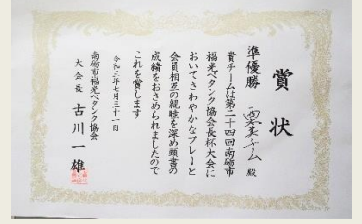 賞状
準優勝
チーム 殿
貴チームは第二十四回南砺市
福光ペタンク協会長杯大会に
おいてさわやかなプレーと
会員相互の親睦を深め頭書の
成績をおさめられましたので
これを賞します
令和三年七月三十一日
南砺市福光ペタンク協会
大会長 古川一雄